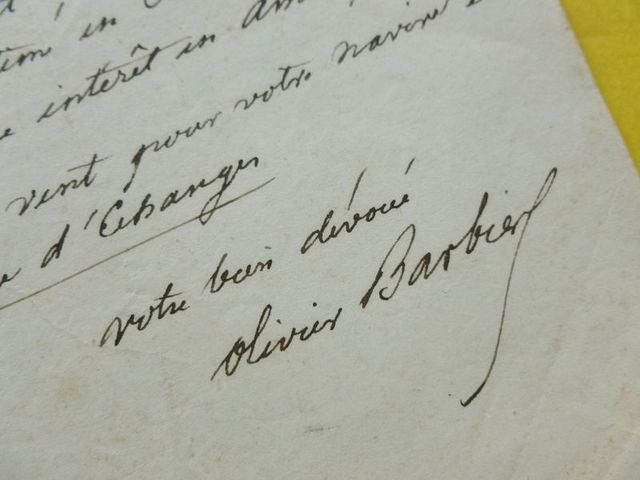 en
intérêt en
vent pour votre navire
d'Échanges
votre bien dévoué
Olivier Barbier